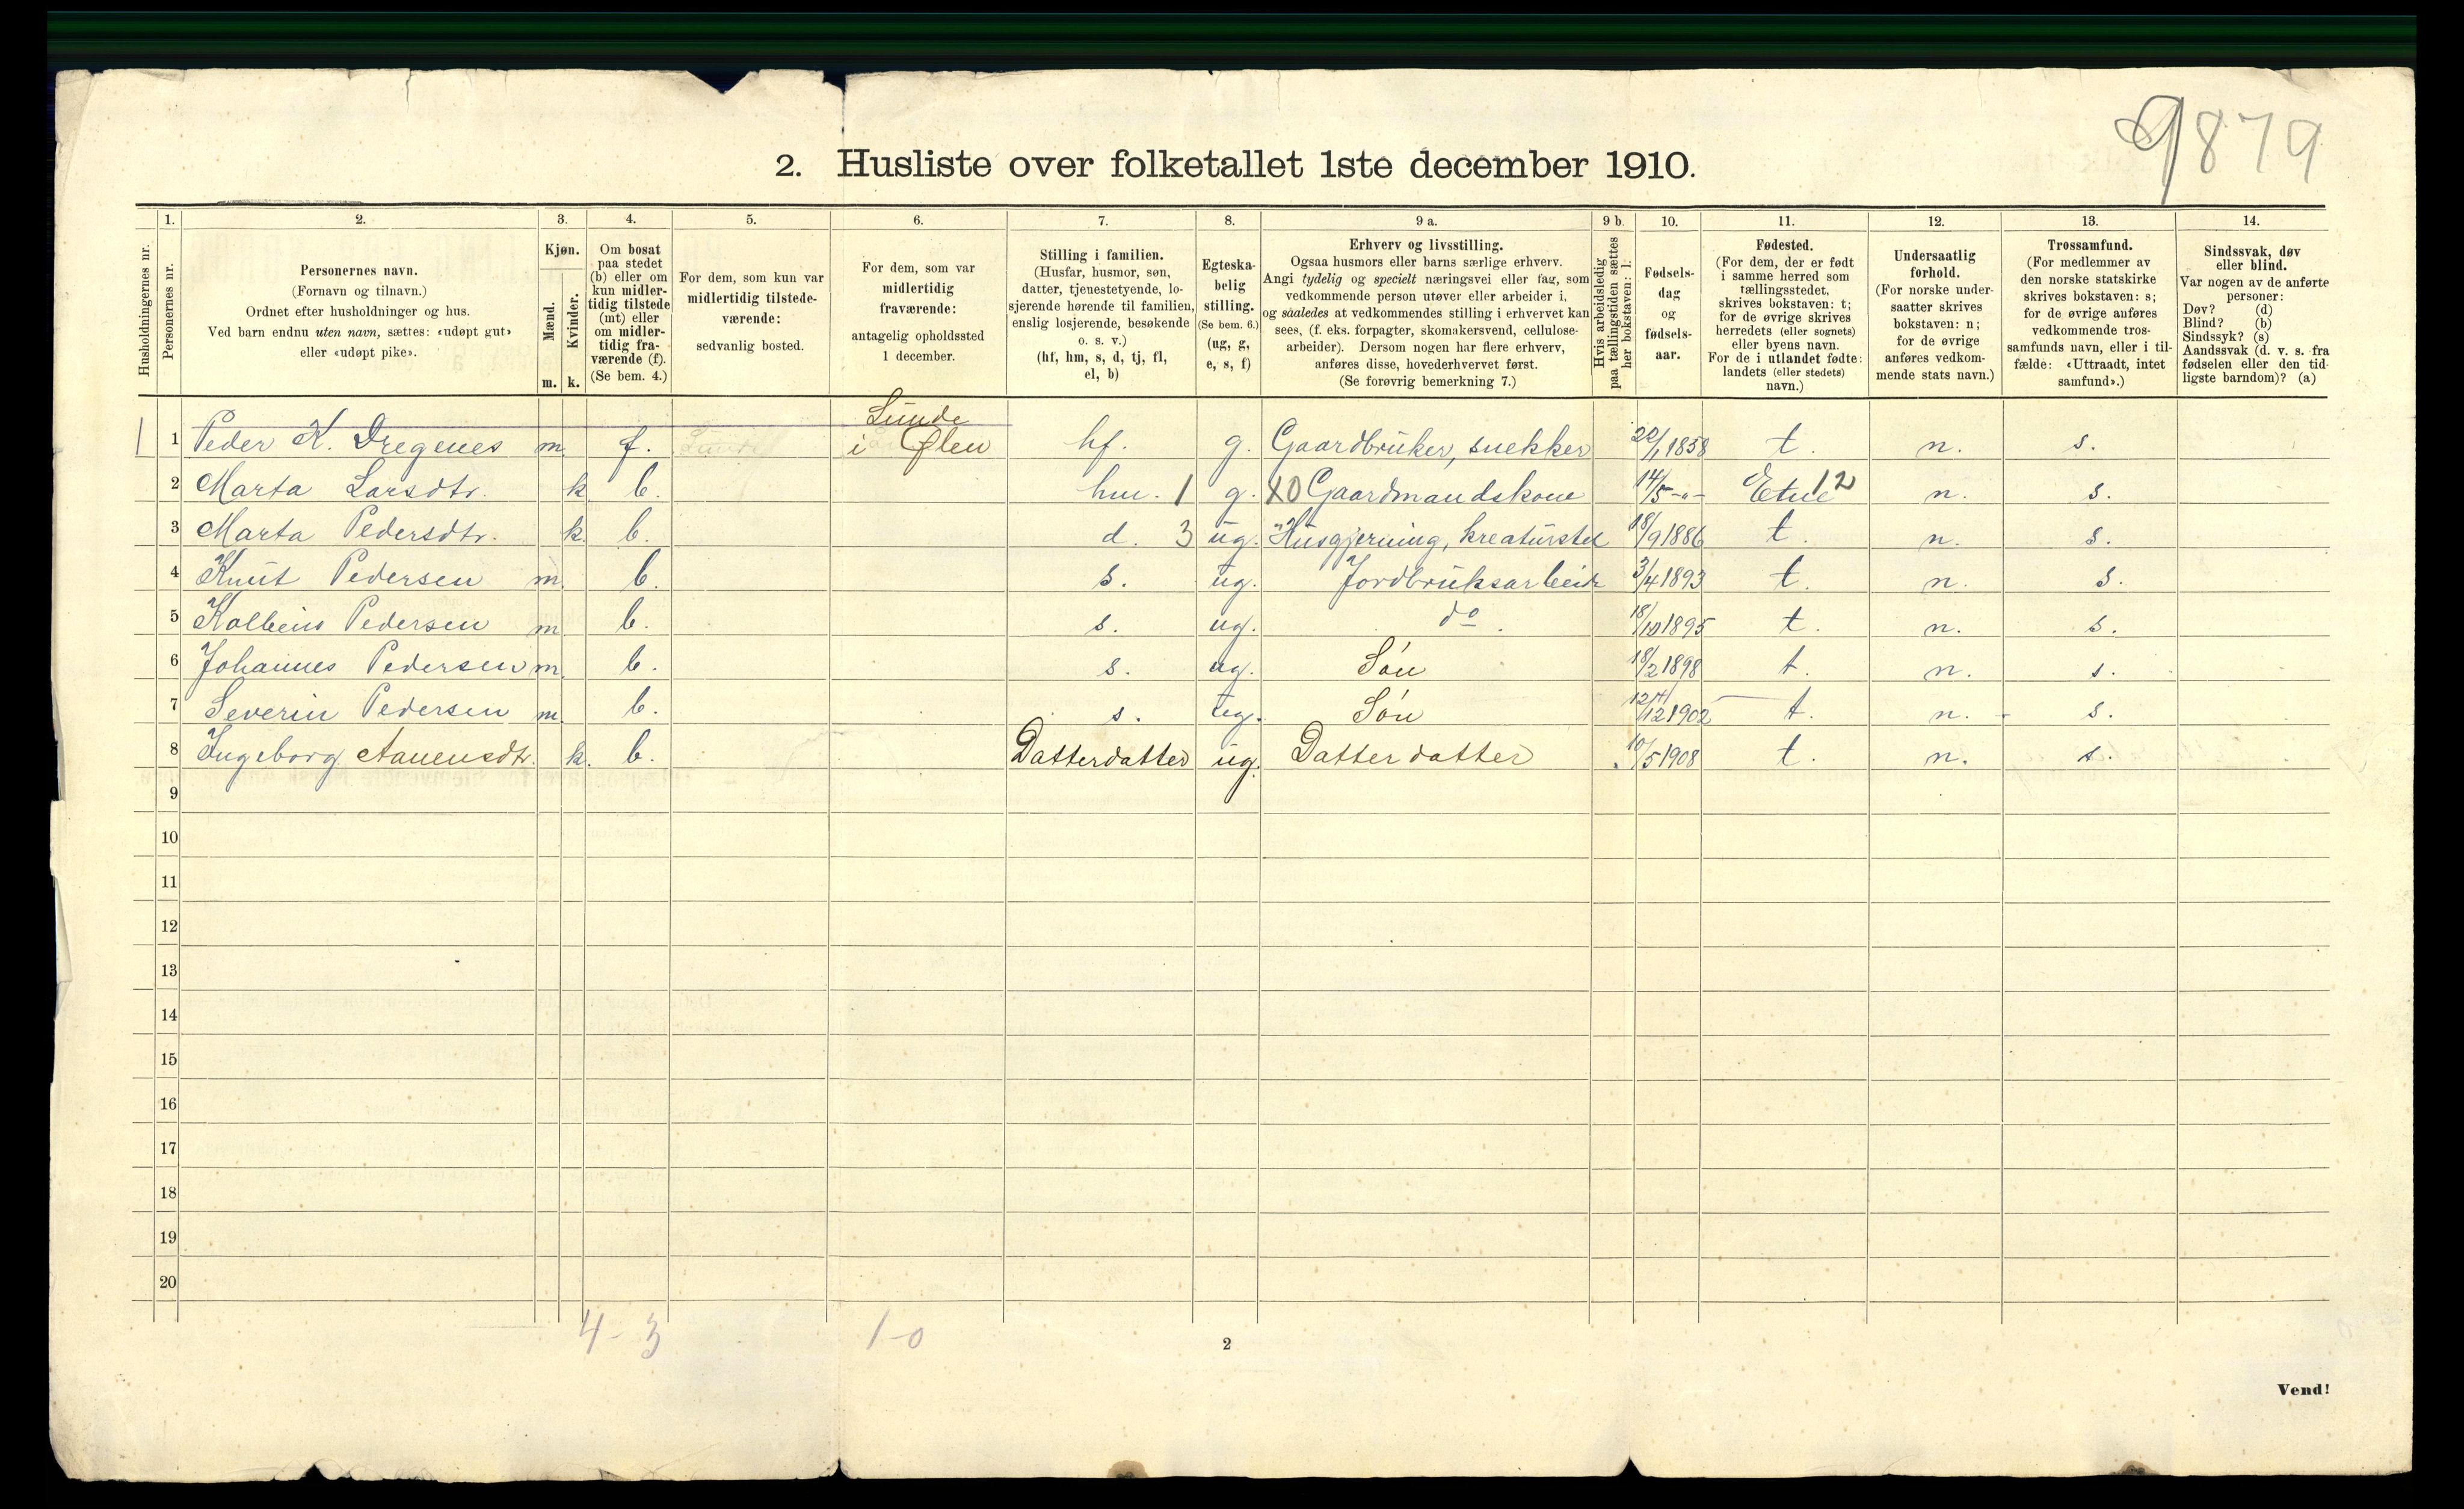 9879
2. Husliste over folketallet 1ste december 1910.
Husholdningernes nr.
1.
Personernes nr.
2.
Personernes navn.
(Fornavn og tilnavn.)
Ordnet efter husholdninger og hus.
Ved barn endnu uten navn, sættes: «udøpt gut»
eller «udøpt pike».
3.
Kjøn.
Mænd.
Kvinder.
m. k.
4.
Om bosat
paa stedet
(b) eller om
kun midler-
tidig tilstede
(mt) eller
om midler-
tidig fra-
værende (f).
(Se bem. 4.)
5.
For dem, som kun var
midlertidig tilstede-
værende:
sedvanlig bosted.
6.
For dem, som var
midlertidig
fraværende:
antagelig opholdssted
1 december.
7.
Stilling i familien.
(Husfar, husmor, søn,
datter, tjenestetyende, lo-
sjerende hørende til familien,
enslig losjerende, besøkende
o. s. v.)
(hf, hm, s, d, tj, fl,
el, b)
8.
Egteska-
belig
stilling.
(Se bem. 6.)
(ug, g,
e, s, f)
9 a.
Erhverv og livsstilling.
Ogsaa husmors eller barns særlige erhverv.
Angi tydelig og specielt næringsvei eller fag, som
vedkommende person utøver eller arbeider i,
og saaledes at vedkommendes stilling i erhvervet kan
sees, (f. eks. forpagter, skomakersvend, cellulose-
arbeider). Dersom nogen har flere erhverv,
anføres disse, hovederhvervet først.
(Se forøvrig bemerkning 7.)
9 b.
Hvis arbeidsledig
paa tællingstiden sættes
her bokstaven: l.
10.
Fødsels-
dag
og
fødsels-
aar.
11.
Fødested.
(For dem, der er født
i samme herred som
tællingsstedet,
skrives bokstaven: t;
for de øvrige skrives
herredets (eller sognets)
eller byens navn.
For de i utlandet fødte:
landets (eller stedets)
navn.)
12.
Undersaatlig
forhold.
(For norske under-
saatter skrives
bokstaven: n;
for de øvrige
anføres vedkom-
mende stats navn.)
13.
Trossamfund.
(For medlemmer av
den norske statskirke
skrives bokstaven: s;
for de øvrige anføres
vedkommende tros-
samfunds navn, eller i til-
fælde: «Uttraadt, intet
samfund».)
14.
Sindssvak, døv
eller blind.
Var nogen av de anførte
personer:
Døv? (d)
Blind? (b)
Sindssyk? (s)
Aandssvak (d. v. s. fra
fødselen eller den tid-
ligste barndom)? (a)
Lunde
1 1 Peder K. Dregenes m. f. i Ølen hf. g. Gaardbruker, snekker 22/1 1858 t. n. s.
2 Marta Larsdtr. k. b. hm. 1 g. X0 Gaardmandskone 14/5 -"- Etne 12 n. s.
3 Marta Pedersdtr. k. b. d. 3 ug. Husgjerning, kreaturstel 18/9 1886 t. n. s.
4 Knut Pedersen m. b. s. ug. Jordbruksarbeide 3/4 1893 t. n. s.
5 Kolbein Pedersen m b. s. ug. do. 18/10 1895 t. n. s.
6 Johannes Pedersen m. b. s. ug. Søn 18/2 1898 t. n. s.
7 Severin Pedersen m. b. s. ug. Søn 12/12 1902 t. n. s.
8 Ingeborg Aanensdtr. k. b. Datterdatter ug. Datterdatter 10/5 1908 t. n. s.
9
10
11
12
13
14
15
16
17
18
19
20
4-3 1-0
2
Vend!